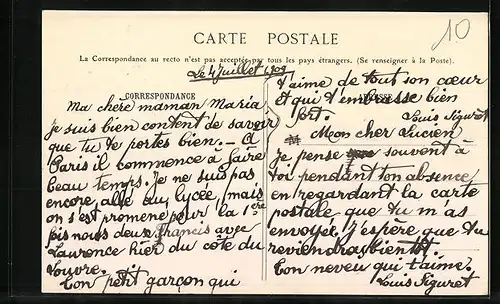 10
CARTE POSTALE
La Correspondance au recto n'est pas acceptée par tous les pays étrangers. (Se renseigner à la Poste).
Le 4 Juillet 1909
CORRESPONDANCE
Ma chère maman Maria
je suis bien content de savoir
que tu te portes bien. — A
Paris il commence à faire
beau temps. Je ne suis pas
encore allé au lycée, mais
on s'est promené pour la 1ère
fois nous deux francis avec
Laurence hier du côté du
Louvre.
Ton petit garçon qui
t'aime de tout son cœur
et qui t'embrasse bien
fort. Louis Siguret
Mon cher Lucien
Je pense souvent à
toi pendant ton absence
en regardant la carte
postale que tu m'as
envoyée, j'espère que tu
reviendras bientôt.
Ton neveu qui t'aime.
Louis Siguret